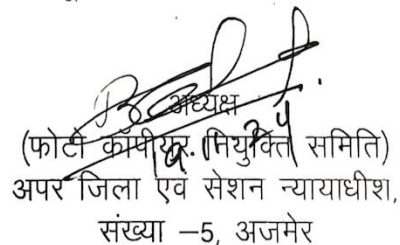 अध्यक्ष
(फोटो कॉपीयर नियुक्ति समिति)
अपर जिला एवं सेशन न्यायाधीश,
संख्या –5, अजमेर